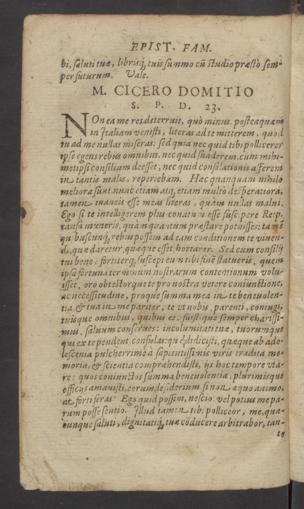 EPIST. FAM.
bi, saluti tuæ, liberisq́; tuis summo cū studio præsto sem-
per futurum. Vale.
M. CICERO DOMITIO
S. P. D. 23.
NOn ea me res deterruit, quò minus posteaquàm
in Italiam venisti, literas ad te mitterem, quod
tu ad me nullas miseras: sed quia nec quid tibi pollicerer
ipse egens rebus omnibus, nec quid suaderem, cum mihi-
metipsi consilium deesset, nec quid consolationis afferrem
in tantis malis, reperiebam. Hæc quanquam nihilo
meliora sunt nunc etiam atq; etiam multò desperatiora,
tamen inaneis esse meas literas, quàm nullas malui.
Ego si te intelligerem plus conatum esse suscipere Reip.
causa muneris, quàm quantum præstare potuisses: tamē
quibuscunq; rebus possem ad eam conditionem te viuen-
di, quæ daretur, quæque esset, hortarer. Sed cum consilij
tui bene, fortiterq; suscepti eum tibi finē statueris, quem
ipsa fortuna terminum nostrarum contentionum volu-
isset, oro obtestorque te pro nostra vetere coniunctione,
ac necessitudine, proque summa mea in te beneuolen-
tia, & tua in me pariter, te vt nobis, parenti, coniugi,
tuisque omnibus, quibus es, fuistique semper charissi-
mus, saluum conserues: incolumitati tuæ, tuorumque
qui ex te pendent, consulas: quæ didicisti, quæque ab ado-
lescentia pulcherrimè à sapientissimis viris tradita me-
moria, & scientia comprehendisti, ijs hoc tempore vta-
re: quos coniunctos summa beneuolentia, plurimisque
officijs amauisti, eorum desiderium si non æquo animo,
at forti feras. Ego quid possim, nescio, vel potius me pa-
rum posse sentio. Illud tamen tibi polliceor, me, quæ-
cunque saluti, dignitatiq́; tuæ cōducere arbitrabor, tan-